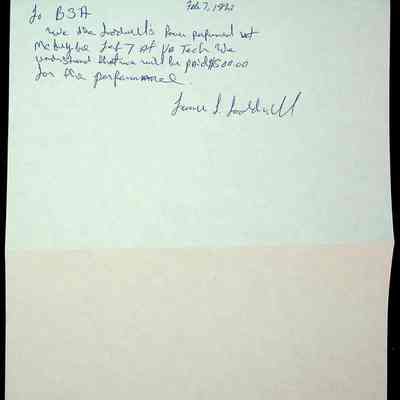 Feb 7, 1992
To BSA
We the have performed at
Feb 7 At VA Tech We
understand that we will be paid $500.00
for the performance.